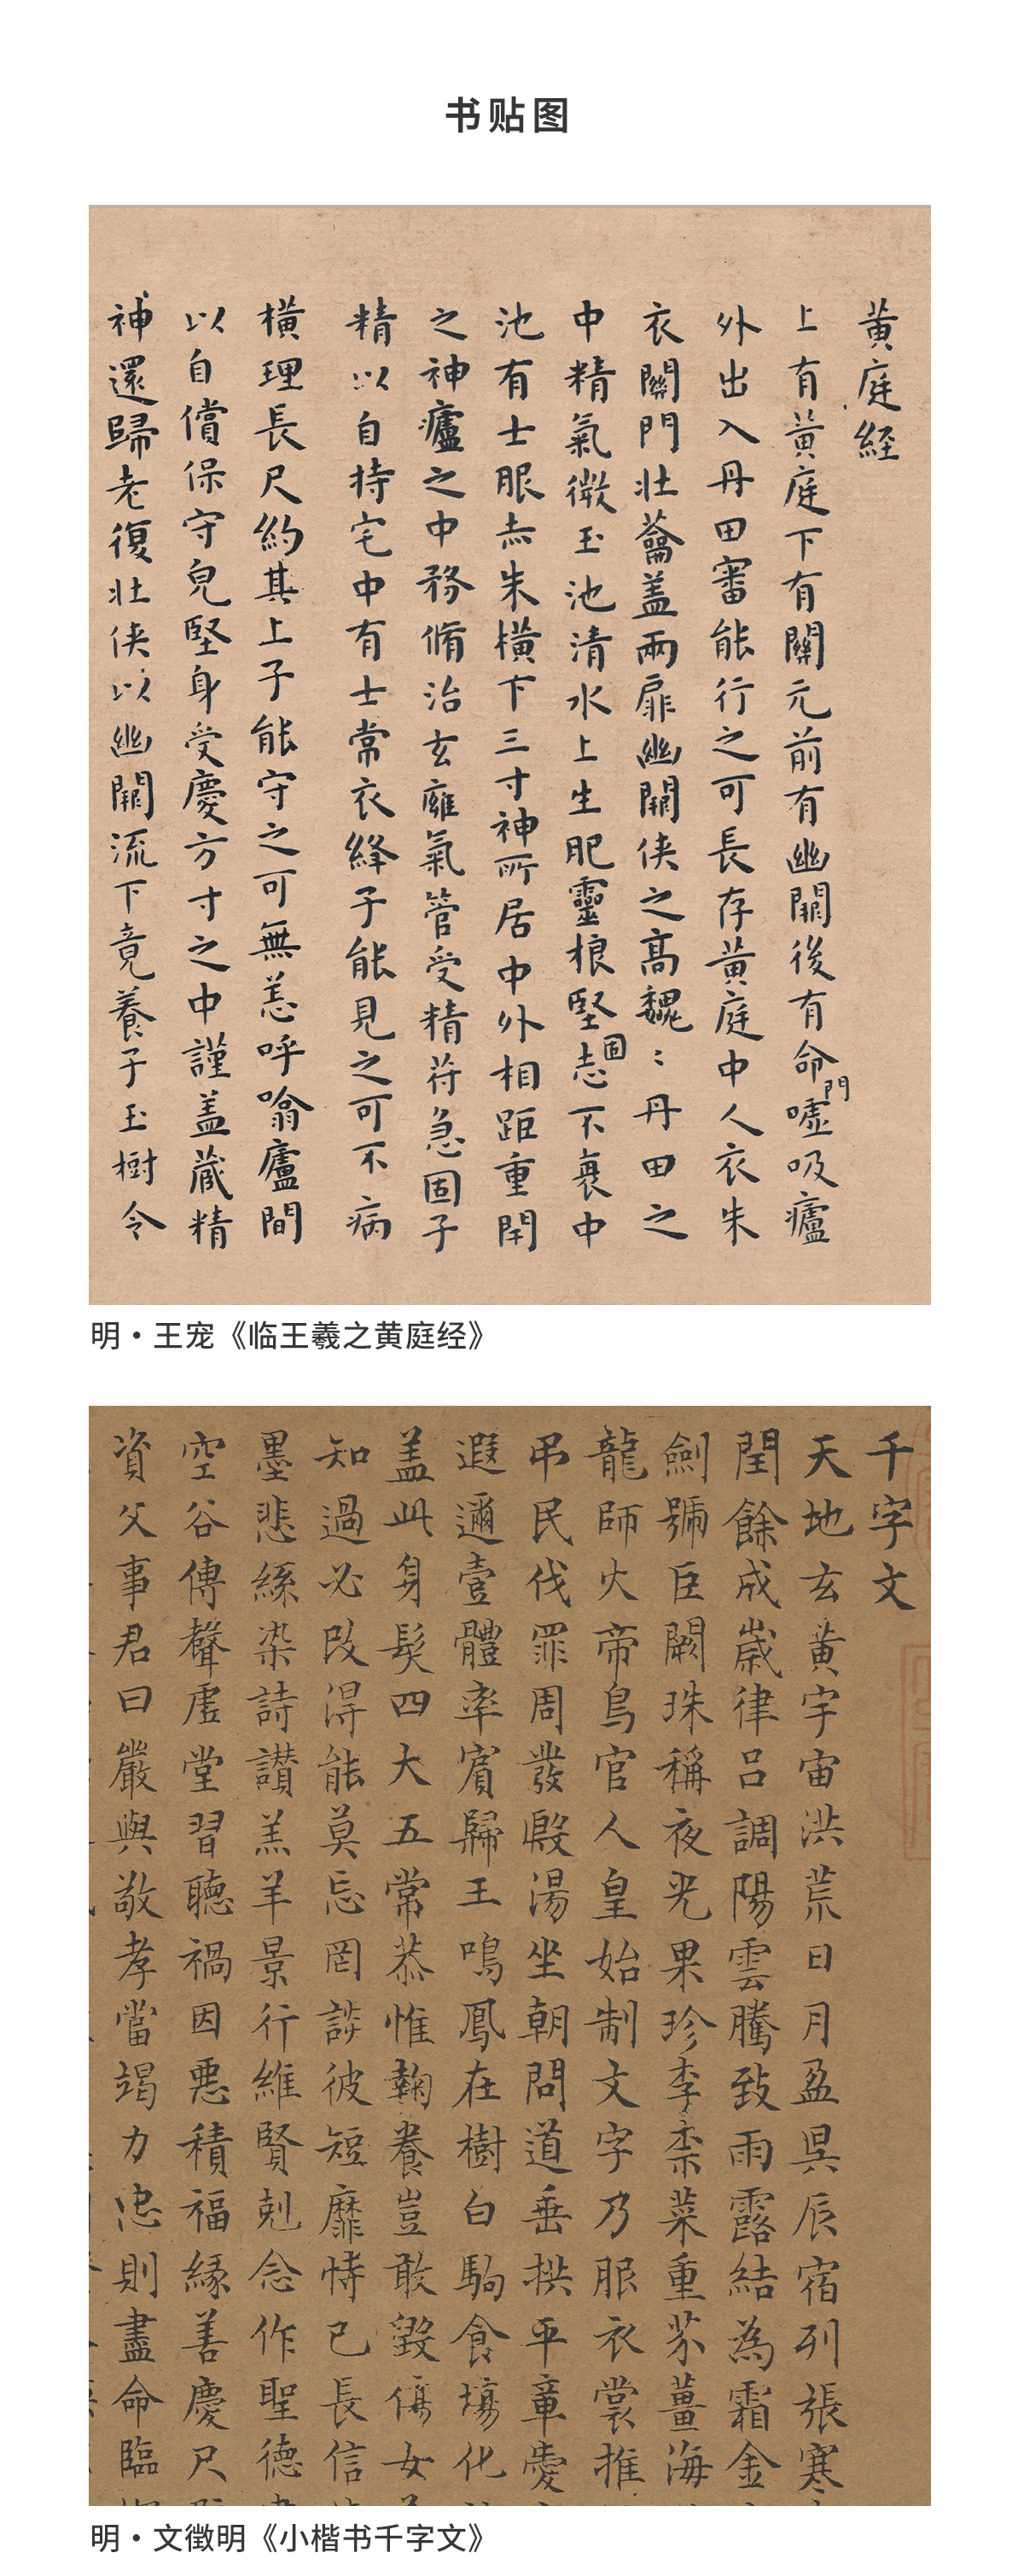 书贴图
黃庭經
上有黃庭下有關元前有幽闕後有命門噓吸廬
外出入丹田審能行之可長存黃庭中人衣朱
衣關門壯蘥盖兩扉幽闕侠之髙魏〻丹田之
中精氣微玉池清水上生肥靈根堅固志不衰中
池有士服赤朱橫下三寸神所居中外相距重閇
之神廬之中務脩治玄廱氣管受精苻急固子
精以自持宅中有士常衣絳子能見之可不病
橫理長尺約其上子能守之可無恙呼噏廬間
以自償保守皃堅身受慶方寸之中謹盖蔵精
神還歸老復壮侠以幽闕流下竟養子玉樹令
明·王宠《临王羲之黄庭经》
千字文
天地玄黃宇宙洪荒日月盈昃辰宿列張寒
閏餘成歲律呂調陽雲騰致雨露結為霜金
劍號巨闕珠稱夜光果珍李柰菜重芥薑海
龍師火帝鳥官人皇始制文字乃服衣裳推
弔民伐罪周發殷湯坐朝問道垂拱平章愛
遐邇壹體率賓歸王鳴鳳在樹白駒食場化
盖此身髮四大五常恭惟鞠養豈敢毀傷女
知過必改得能莫忘罔談彼短靡恃己長信
墨悲絲染詩讃羔羊景行維賢剋念作聖德
空谷傳聲虛堂習聽禍因悪積福緣善慶尺
資父事君曰嚴與敬孝當竭力忠則盡命臨
明·文徵明《小楷书千字文》